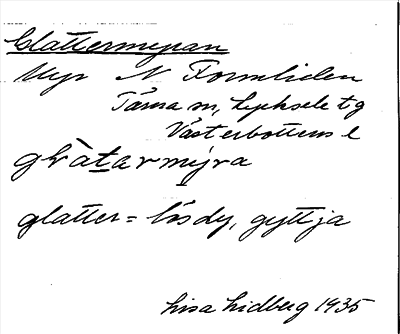 Glattermyran
Myr N Formliden
Tärna sn, Lycksele tg
Västerbottens l
glàtarmýra
glatter = lösdy, gyttja
Lisa Lidberg 1935